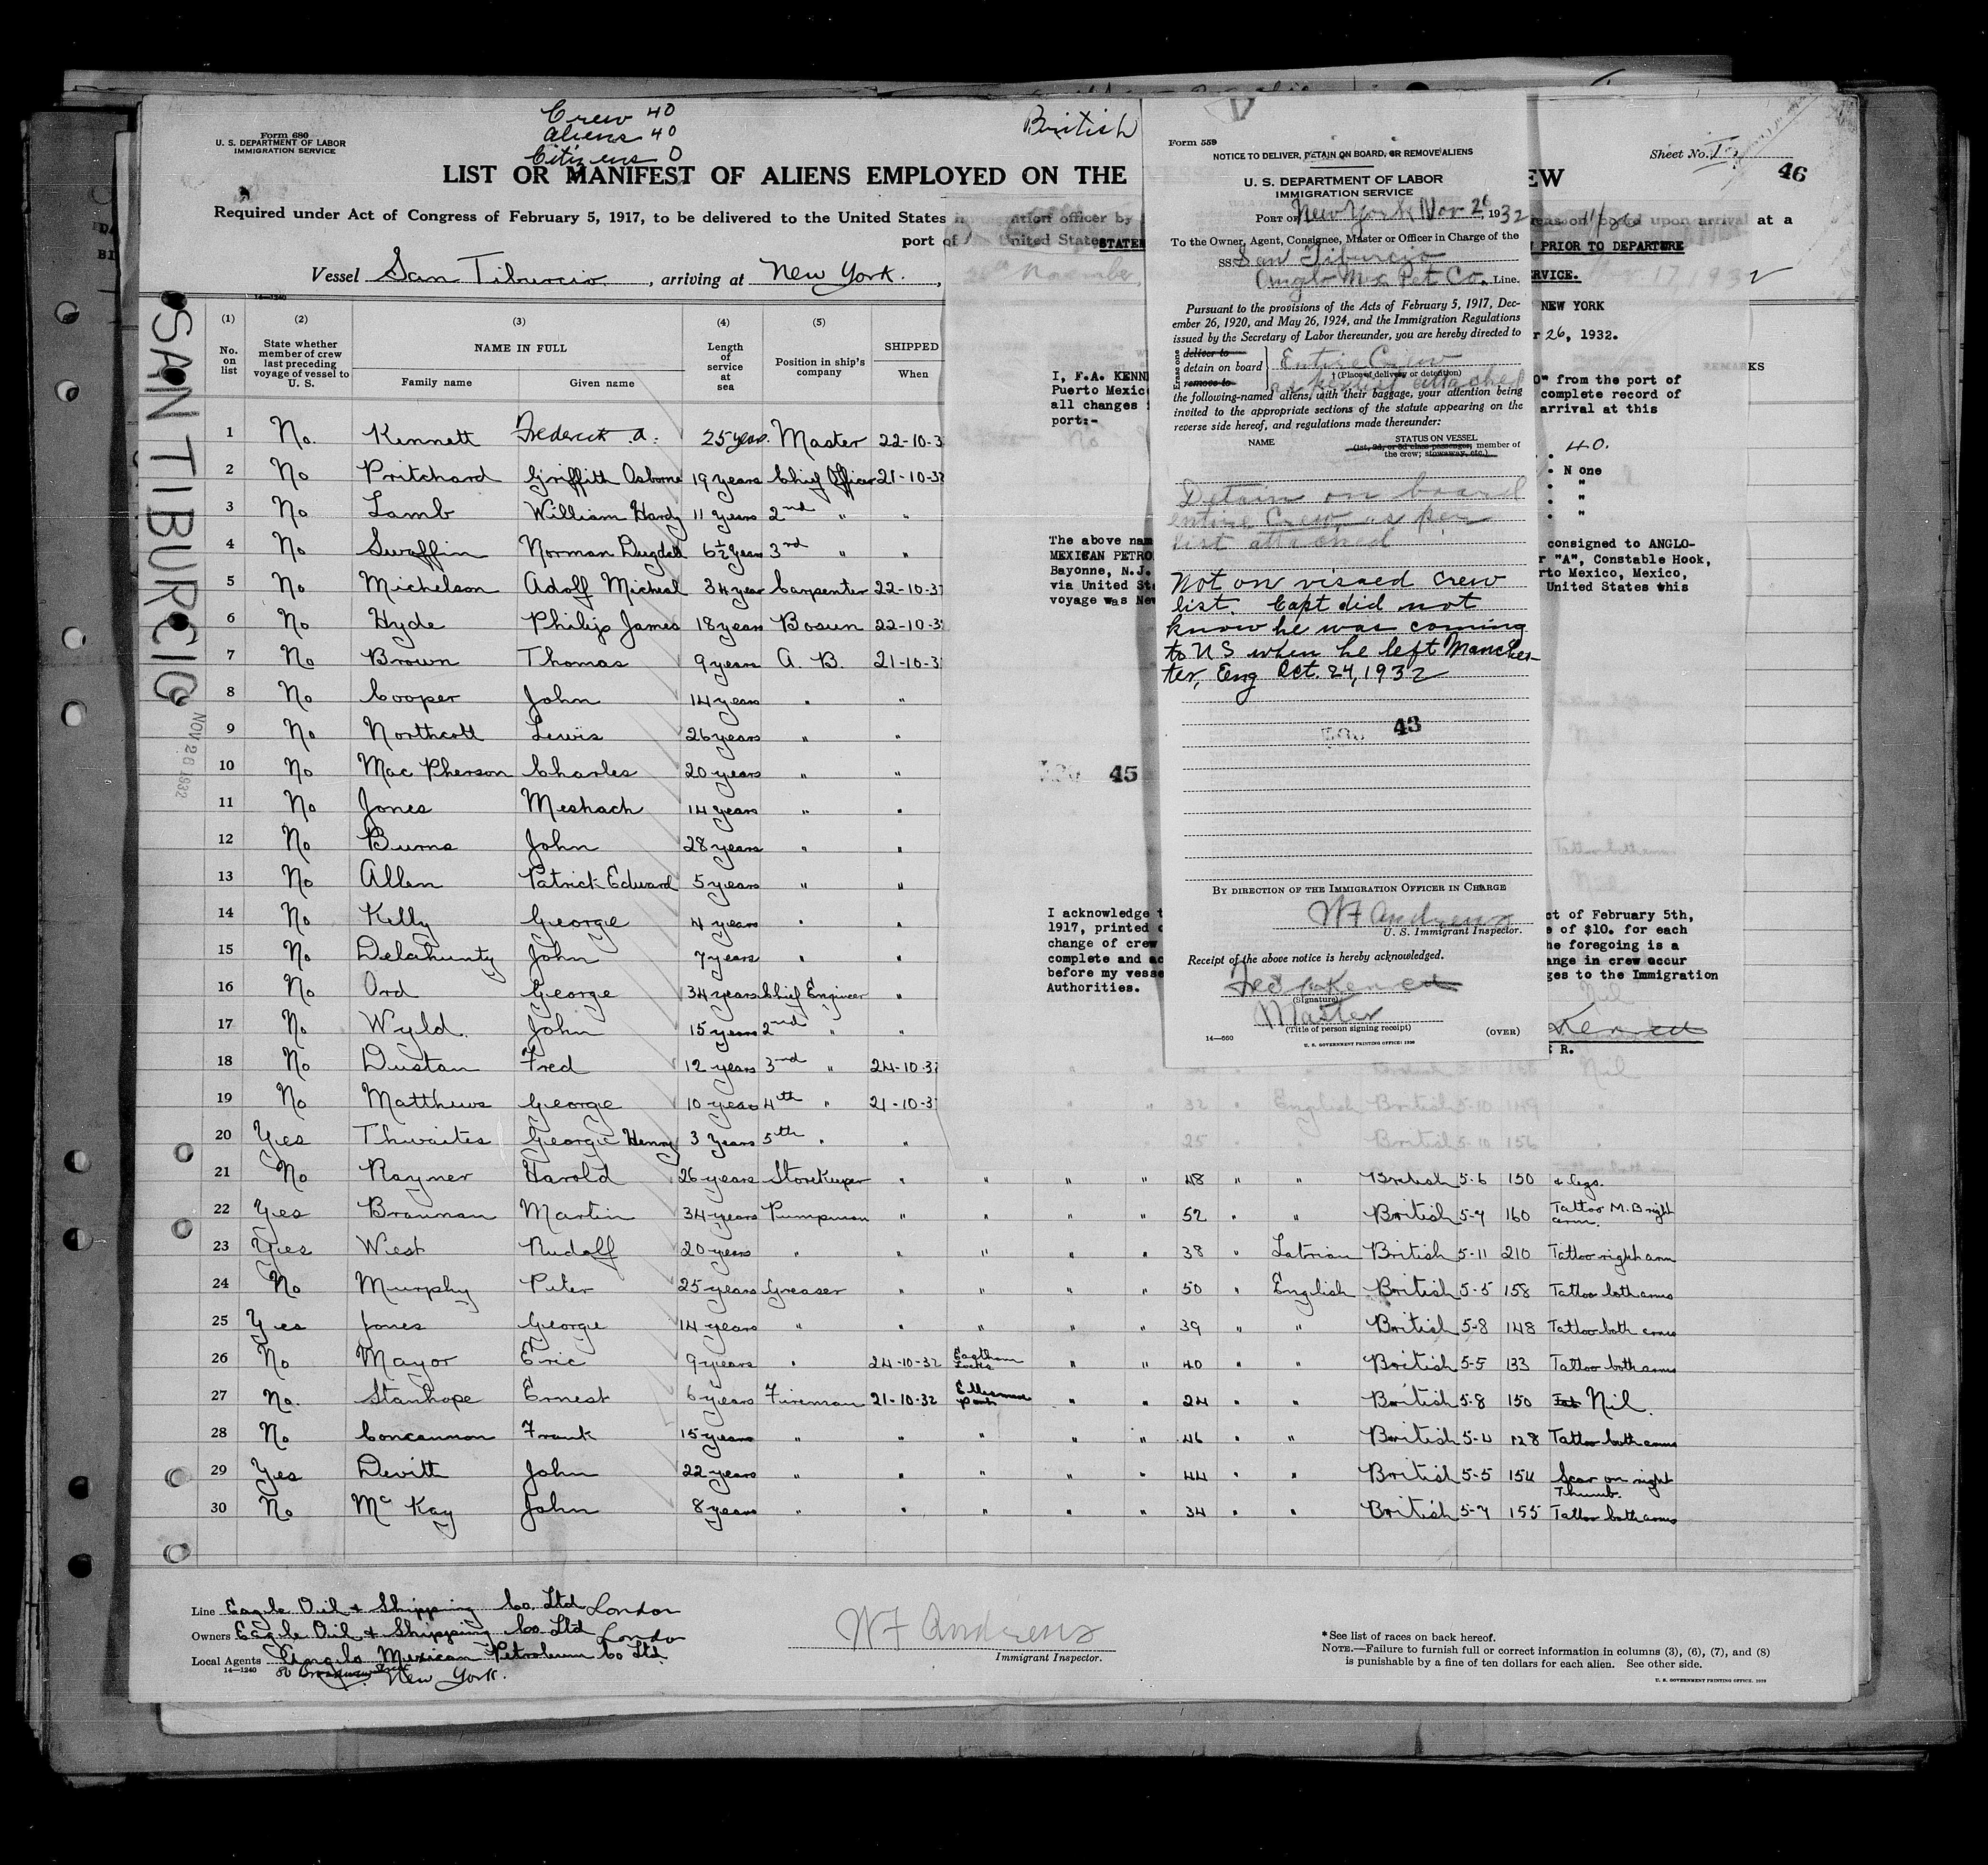 Crew 40
Aliens 40
Citizens 0
British
Form 680
U. S. DEPARTMENT OF LABOR
IMMIGRATION SERVICE
LIST OR MANIFEST OF ALIENS EMPLOYED ON THE
EW
Sheet No. 1
46
Required under Act of Congress of February 5, 1917, to be delivered to the United States
upon arrival at a
port of United States
Vessel San Tiburcio, arriving at New York.,
Nov. 17, 1932
14—1240
SAN TIBURCIO
NOV 26 1932
(1) (2) (3) (4) (5)
No. on list
State whether member of crew last preceding voyage of vessel to U. S.
NAME IN FULL
Family name Given name
Length of service at sea
Position in ship's company
SHIPPED
When
REMARKS
1 No. Kennett Frederick A. 25 years. Master 22-10-3
2 No Pritchard Griffith Osborne 19 years Chief Officer 21-10-32
3 No Lamb William Hardy 11 years 2nd " "
4 No Swaffin Norman Dugdall 6½ years 3rd " "
5 No Michelson Adolf Micheal 34 year Carpenter 22-10-3
6 No Hyde Philip James 18 years Bosun 22-10-3
7 No Brown Thomas 9 years A. B. 21-10-3
8 No Cooper John 14 years " "
9 No Northcott Lewis 26 years " "
10 No Mac Pherson Charles 20 years " "
11 No Jones Meshach 14 years " "
12 No Burns John 28 years " "
13 No Allen Patrick Edward 5 years " "
14 No Kelly George 4 years " "
15 No Delahunty John 7 years " "
16 No Ord George 34 years Chief Engineer "
17 No Wyld. John 15 years 2nd " "
18 No Dustan Fred 12 years 3rd " 24-10-3
19 No Matthews George 10 years 4th " 21-10-3
32 " English British 5-10 149
20 Yes Thwaites George Henry 3 years 5th " "
25 " " British 5-10 156
21 No Rayner Harold 26 years Storekeeper " " " " 48 " " British 5-6 150 & legs.
22 Yes Brannan Martin 34 years Pumpman " " " " 52 " " British 5-7 160 Tattoo M.B right arm.
23 Yes West Rudolf 20 years " " " " " 38 " Latvian British 5-11 210 Tattoo right arm
24 No Murphy Peter 25 years Greaser " " " " 50 " English British 5-5 158 Tattoo both arms
25 Yes Jones George 14 years " " " " " 39 " " British 5-8 148 Tattoo both arms
26 No Mayor Eric 9 years " 24-10-32 Eastham Locks " " 40 " " British 5-5 133 Tattoo both arms
27 No. Stanhope Ernest 6 years Fireman 21-10-32 Ellesmere Port " " 24 " " British 5-8 150 Nil.
28 No Concannon Frank 15 years " " " " " 46 " " British 5-4 128 Tattoo both arms
29 Yes Devitt John 22 years " " " " " 44 " " British 5-5 154 Scar on right Thumb.
30 No Mc Kay John 8 years " " " " " 34 " " British 5-7 155 Tattoo both arms
Line Eagle Oil & Shipping Co. Ltd London
Owners Eagle Oil & Shipping Co Ltd London
Local Agents Anglo Mexican Petroleum Co Ltd
14—1240
New York.
WF Andrews
Immigrant Inspector.
*See list of races on back hereof.
NOTE.—Failure to furnish full or correct information in columns (3), (6), (7), and (8)
is punishable by a fine of ten dollars for each alien. See other side.
U. S. GOVERNMENT PRINTING OFFICE
STATE
PRIOR TO DEPARTURE
RVICE.
NEW YORK
26, 1932.
I, F.A. KENN
Puerto Mexic
all changes
port:-
from the port of
complete record of
arrival at this
40.
None
"
"
"
The above nam
MEXICAN PETRO
Bayonne, N.J.
via United St
voyage was New
consigned to ANGLO-
"A", Constable Hook,
rto Mexico, Mexico,
United States whis
45
I acknowledge t
1917, printed
change of crew
complete and ac
before my vesse
Authorities.
ct of February 5th,
e of $10. for each
he foregoing is a
ange in crew occur
ges to the Immigration
R.
Form 559
NOTICE TO DELIVER, DETAIN ON BOARD, OR REMOVE ALIENS
U. S. DEPARTMENT OF LABOR
IMMIGRATION SERVICE
PORT OF New York Nov 26, 1932
To the Owner, Agent, Consignee, Master or Officer in Charge of the
SS. San Tiburcio
Anglo Mex Pet Co. Line.
Pursuant to the provisions of the Acts of February 5, 1917, Dec-
ember 26, 1920, and May 26, 1924, and the Immigration Regulations
issued by the Secretary of Labor thereunder, you are hereby directed to
Erase one
deliver to
detain on board
remove to
Entire Crew
†(Place of delivery or detention)
as per list attached
the following-named aliens, with their baggage, your attention being
invited to the appropriate sections of the statute appearing on the
reverse side hereof, and regulations made thereunder:
NAME
STATUS ON VESSEL
(1st, 2d, or 3d class passenger, member of
the crew; stowaway, etc.)
Detain on board
entire Crew as per
list attached
Not on visaed crew
list. Capt did not
know he was coming
to US when he left Manches-
ter, Eng Oct. 24, 1932
43
BY DIRECTION OF THE IMMIGRATION OFFICER IN CHARGE
WF Andrews
U. S. Immigrant Inspector.
Receipt of the above notice is hereby acknowledged.
(Signature)
Master
(Title of person signing receipt)
14—660
(OVER)
U. S. GOVERNMENT PRINTING OFFICE